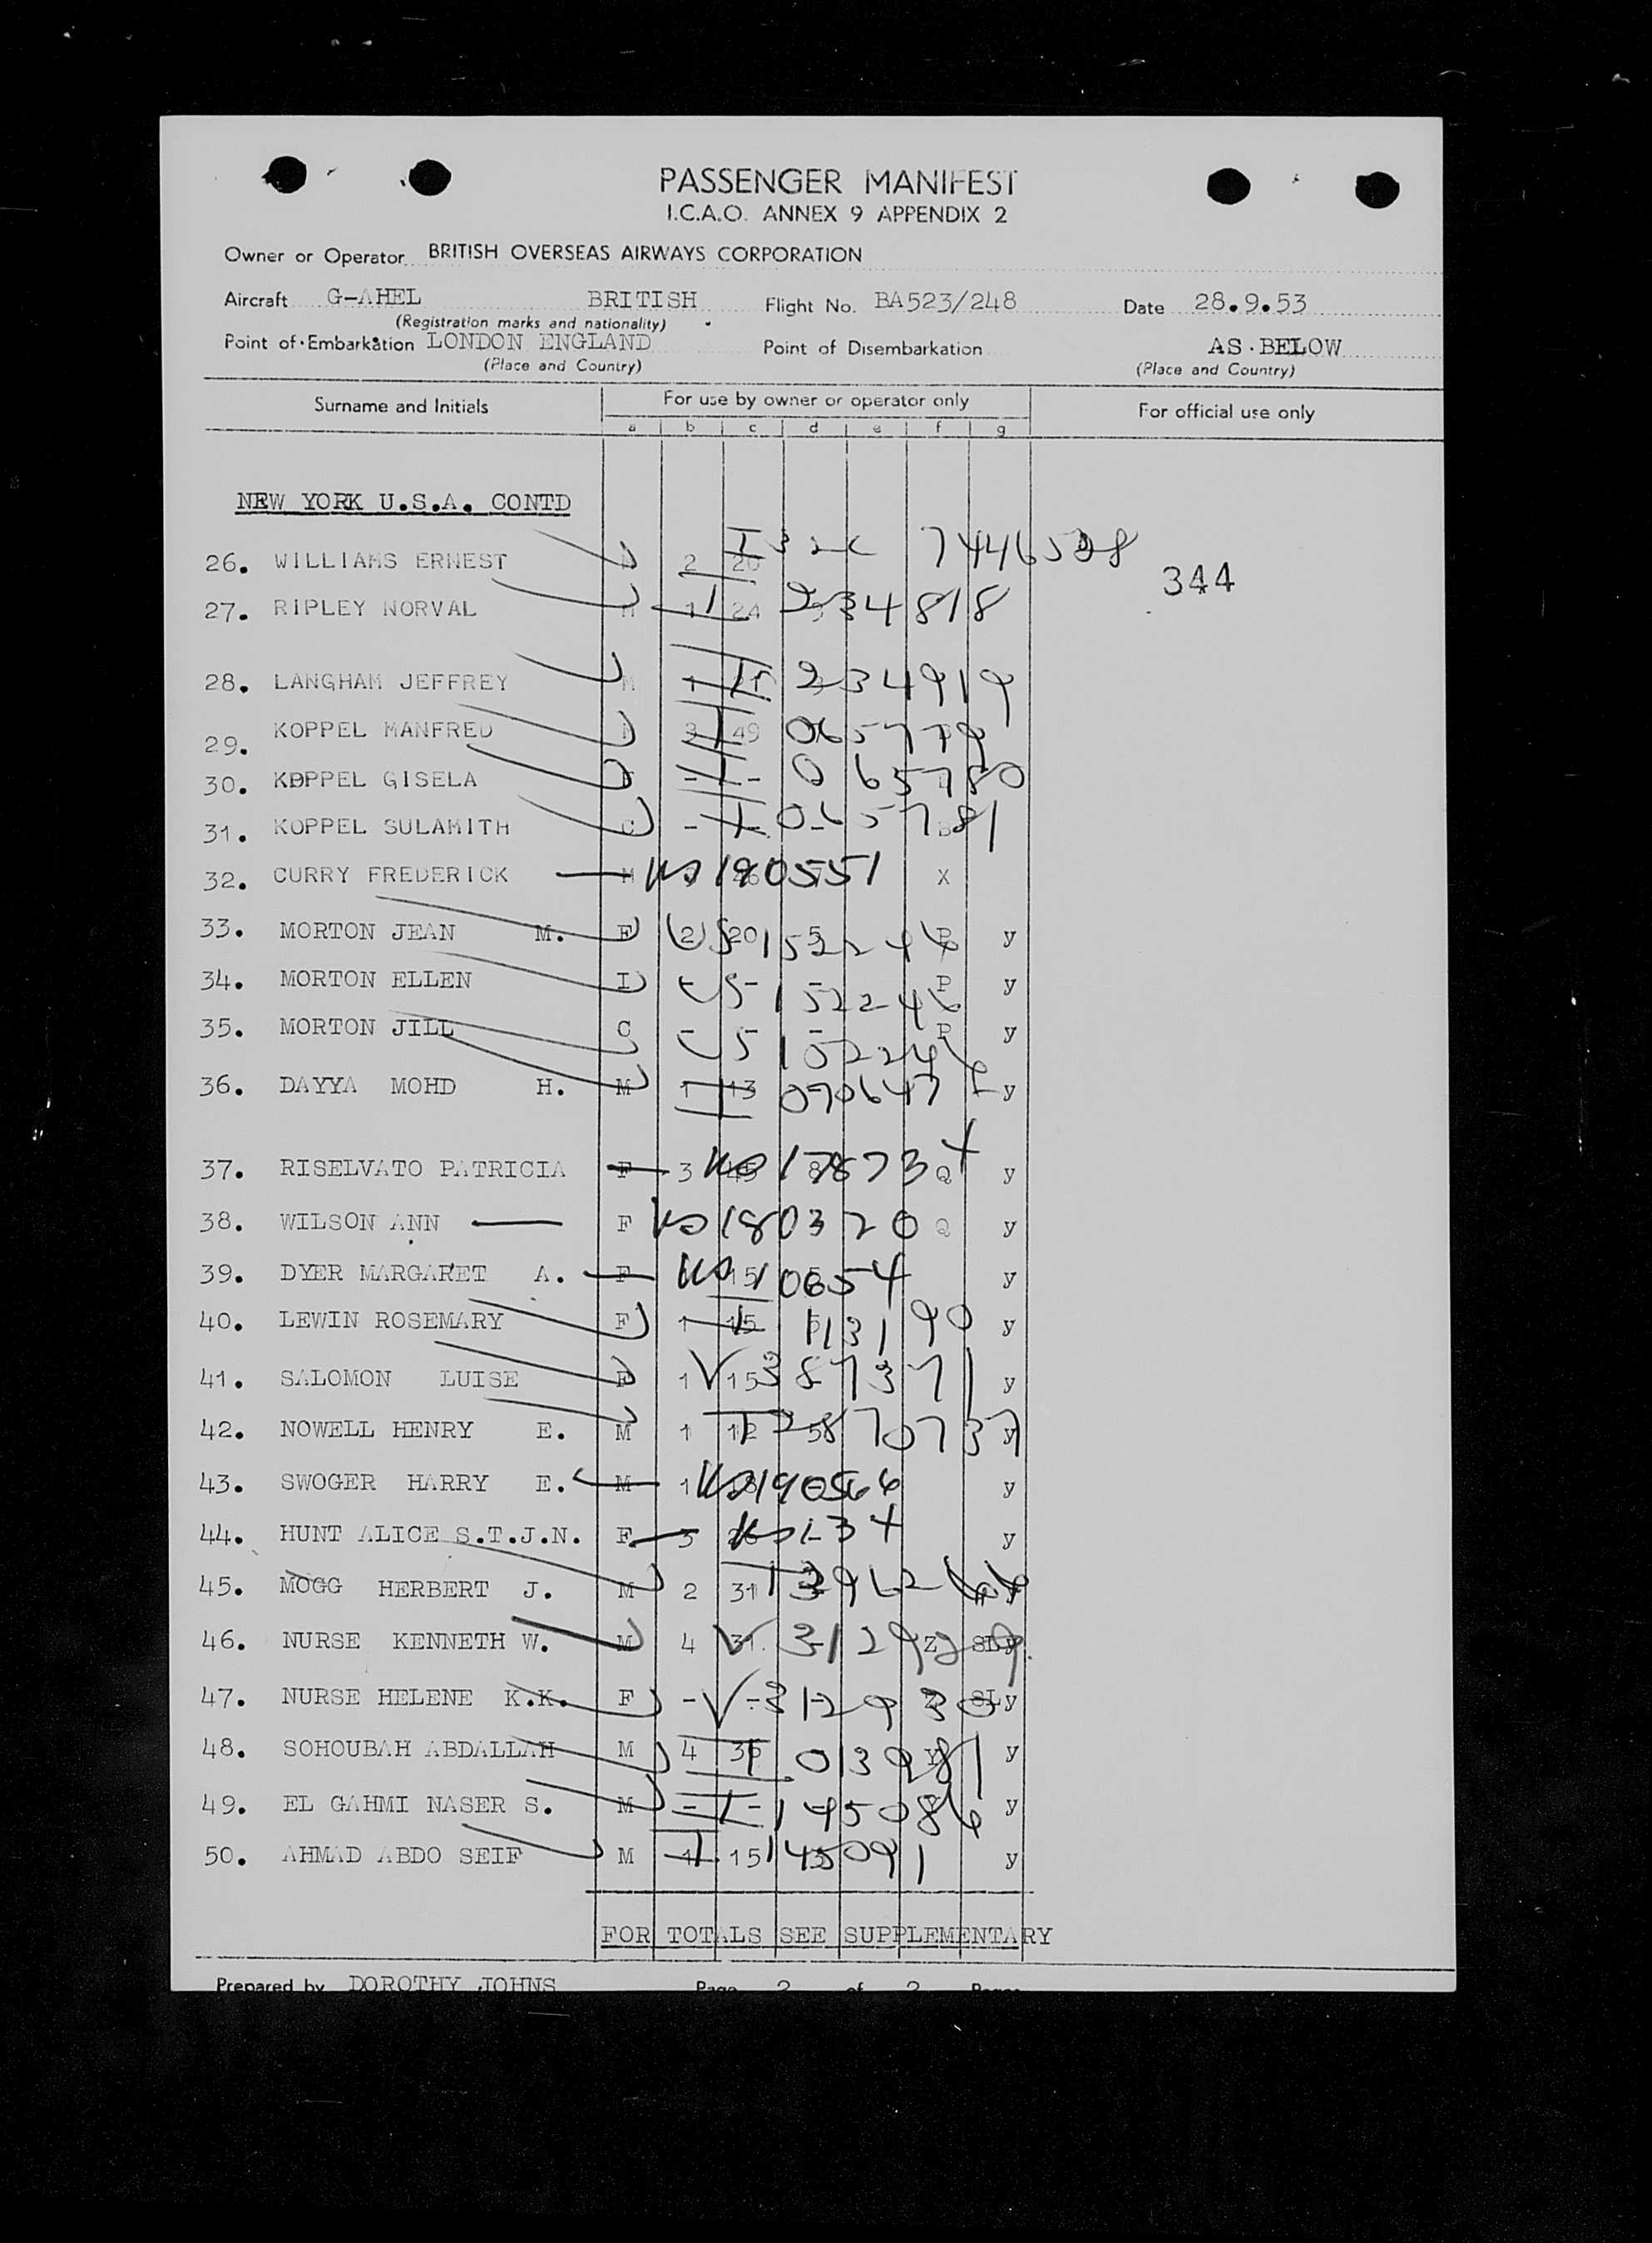 PASSENGER MANIFEST
I.C.A.O. ANNEX 9 APPENDIX 2
Owner or Operator BRITISH OVERSEAS AIRWAYS CORPORATION
Aircraft G-AHEL BRITISH Flight No. BA523/248 Date 28.9.53
(Registration marks and nationality)
Point of Embarkation LONDON ENGLAND Point of Disembarkation AS BELOW
(Place and Country) (Place and Country)
Surname and Initials For use by owner or operator only For official use only
a b c d e f g
NEW YORK U.S.A. CONTD
26. WILLIAMS ERNEST 2 20
344
27. RIPLEY NORVAL M 1 24 234818
28. LANGHAM JEFFREY M 1 234919
29. KOPPEL MANFRED 3 49 065779
30. KOPPEL GISELA - - 065780
31. KOPPEL SULAMITH C - - 065781
32. CURRY FREDERICK M 190551 X
33. MORTON JEAN M. F (2) 20 5 P y
34. MORTON ELLEN I - - - P y
35. MORTON JILL C - - - P y
36. DAYYA MOHD H. M 1 13 090647 y
37. RISELVATO PATRICIA F 3 8 Q y
38. WILSON ANN F 180320 Q y
39. DYER MARGARET A. F 15 y
40. LEWIN ROSEMARY F 1 15 113190 y
41. SALOMON LUISE F 1 15 387371 y
42. NOWELL HENRY E. M 1 12 2870737 y
43. SWOGER HARRY E. M 1 190566 y
44. HUNT ALICE S.T.J.N. F 3 y
45. MOGG HERBERT J. M 2 31
46. NURSE KENNETH W. M 4 31 312929 Z SL y
47. NURSE HELENE K.K. F - - 312930 Z SL y
48. SOHOUBAH ABDALLAH M 4 36 013981 Y y
49. EL GAHMI NASER S. M - - 145086 y
50. AHMAD ABDO SEIF M 1 15 145091 y
FOR TOTALS SEE SUPPLEMENTARY
Prepared by DOROTHY JOHNS Page 2 of 2 Pages